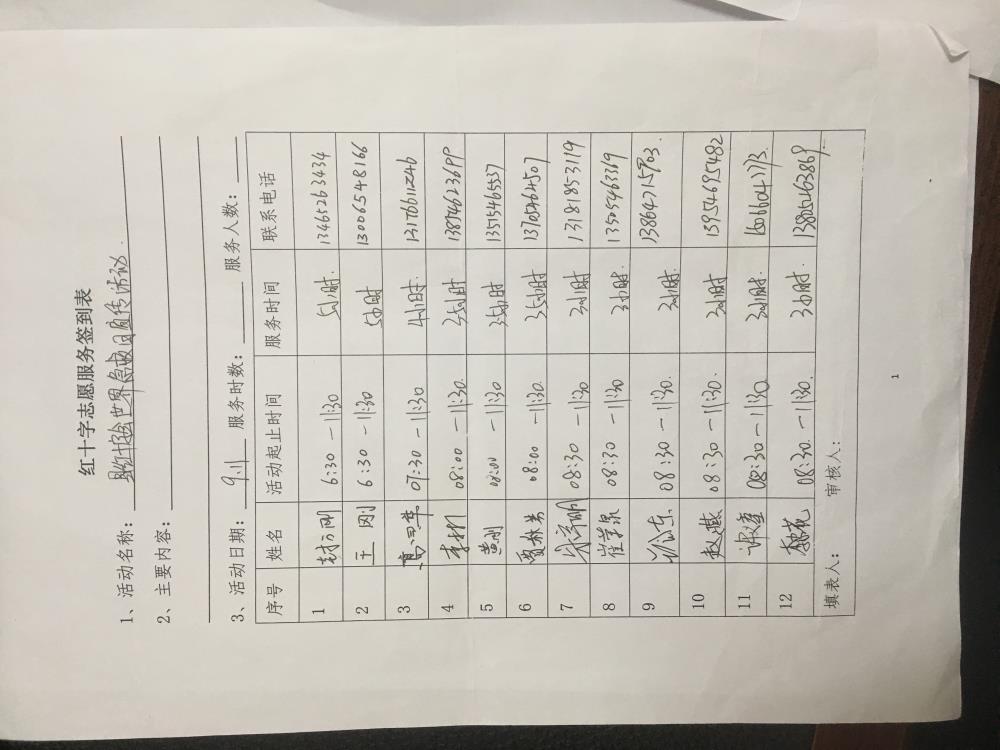 红十字志愿服务签到表
1、活动名称: 县红十字会世界急救日宣传活动.
2、主要内容:
3、活动日期: 9.11 服务时数: 服务人数:
序号 姓名 活动起止时间 服务时间 联系电话
1 6:30-11:30 5小时. 13465263434
2 王刚 6:30-11:30 5小时 13006548166
3 07:30-11:30 4小时
4 08:00-11:30. 3.5小时
5 黄刚 08:00-11:30 3.5小时 13515465537
6 08:00-11:30. 3.5小时 13705464507
7 08:30-11:30 3小时 13181853119
8 08:30-11:30 3小时. 13505463369
9 08:30-11:30. 3小时.
10 赵燕 08:30-11:30. 3小时 13954695482
11 08:30-11:30 3小时.
12 08:30-11:30. 3小时. 13805463869
填表人: 审核人:
1